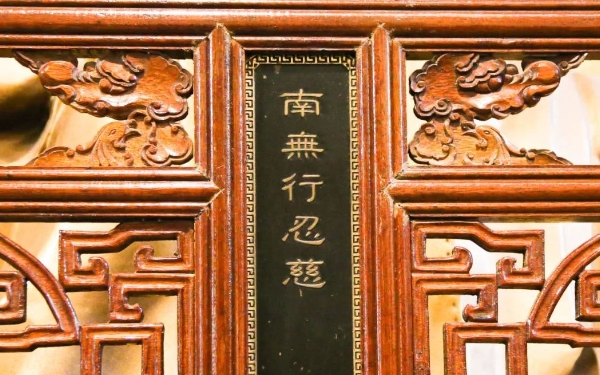 南無行忍慈